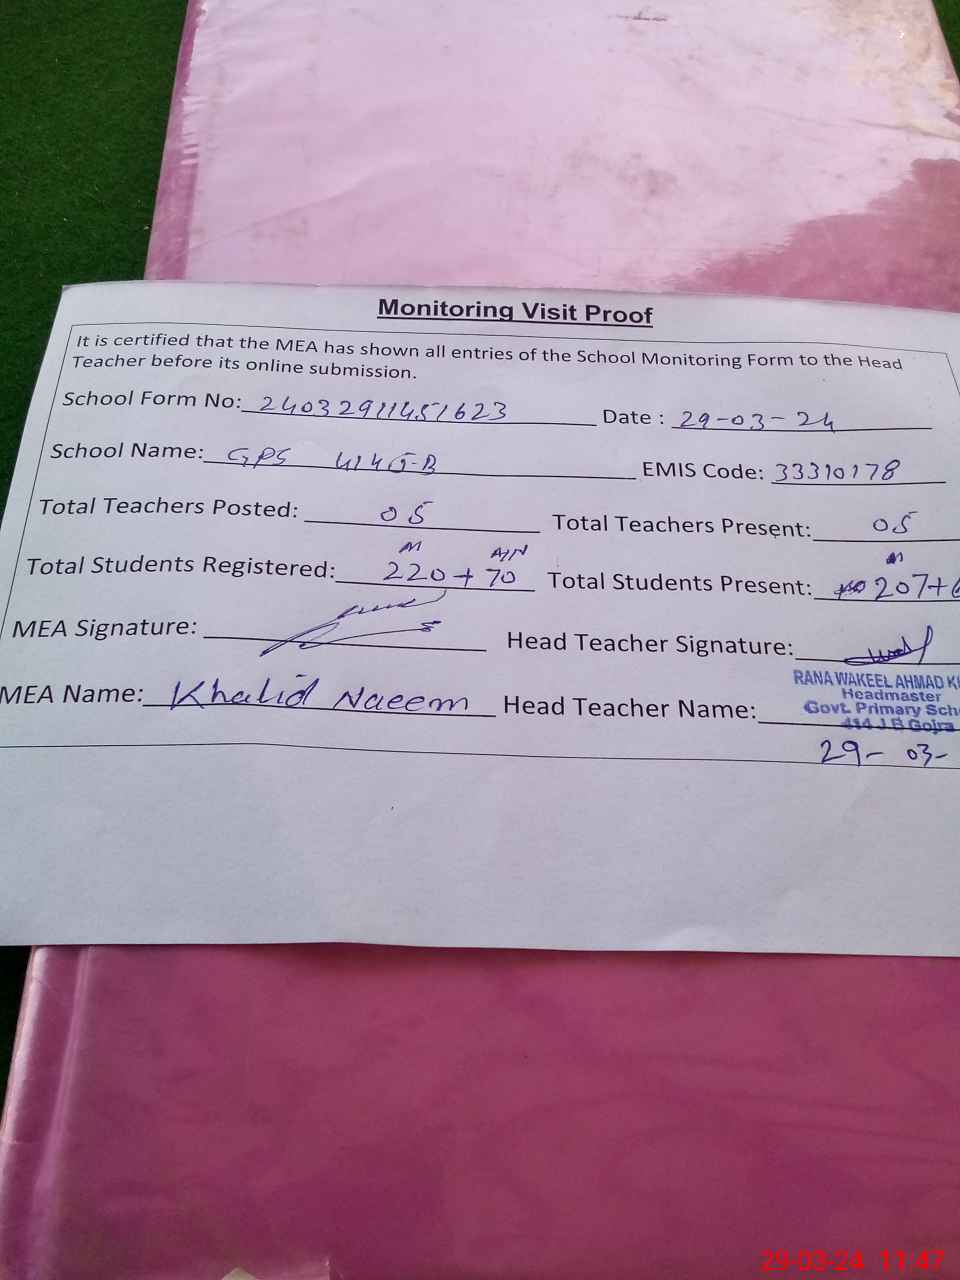 Monitoring Visit Proof
It is certified that the MEA has shown all entries of the School Monitoring Form to the Head
Teacher before its online submission.
School Form No: 24032911451623 Date : 29-03-24
School Name: GPS 414 J-B EMIS Code: 33310178
Total Teachers Posted: 05 Total Teachers Present: 05
M A/N M
Total Students Registered: 220+70 Total Students Present: 207+6
MEA Signature: Head Teacher Signature:
MEA Name: Khalid Naeem Head Teacher Name:
RANA WAKEEL AHMAD K
Headmaster
Govt. Primary Scho
414 J B Gojra
29- 03-
29-03-24 11:47